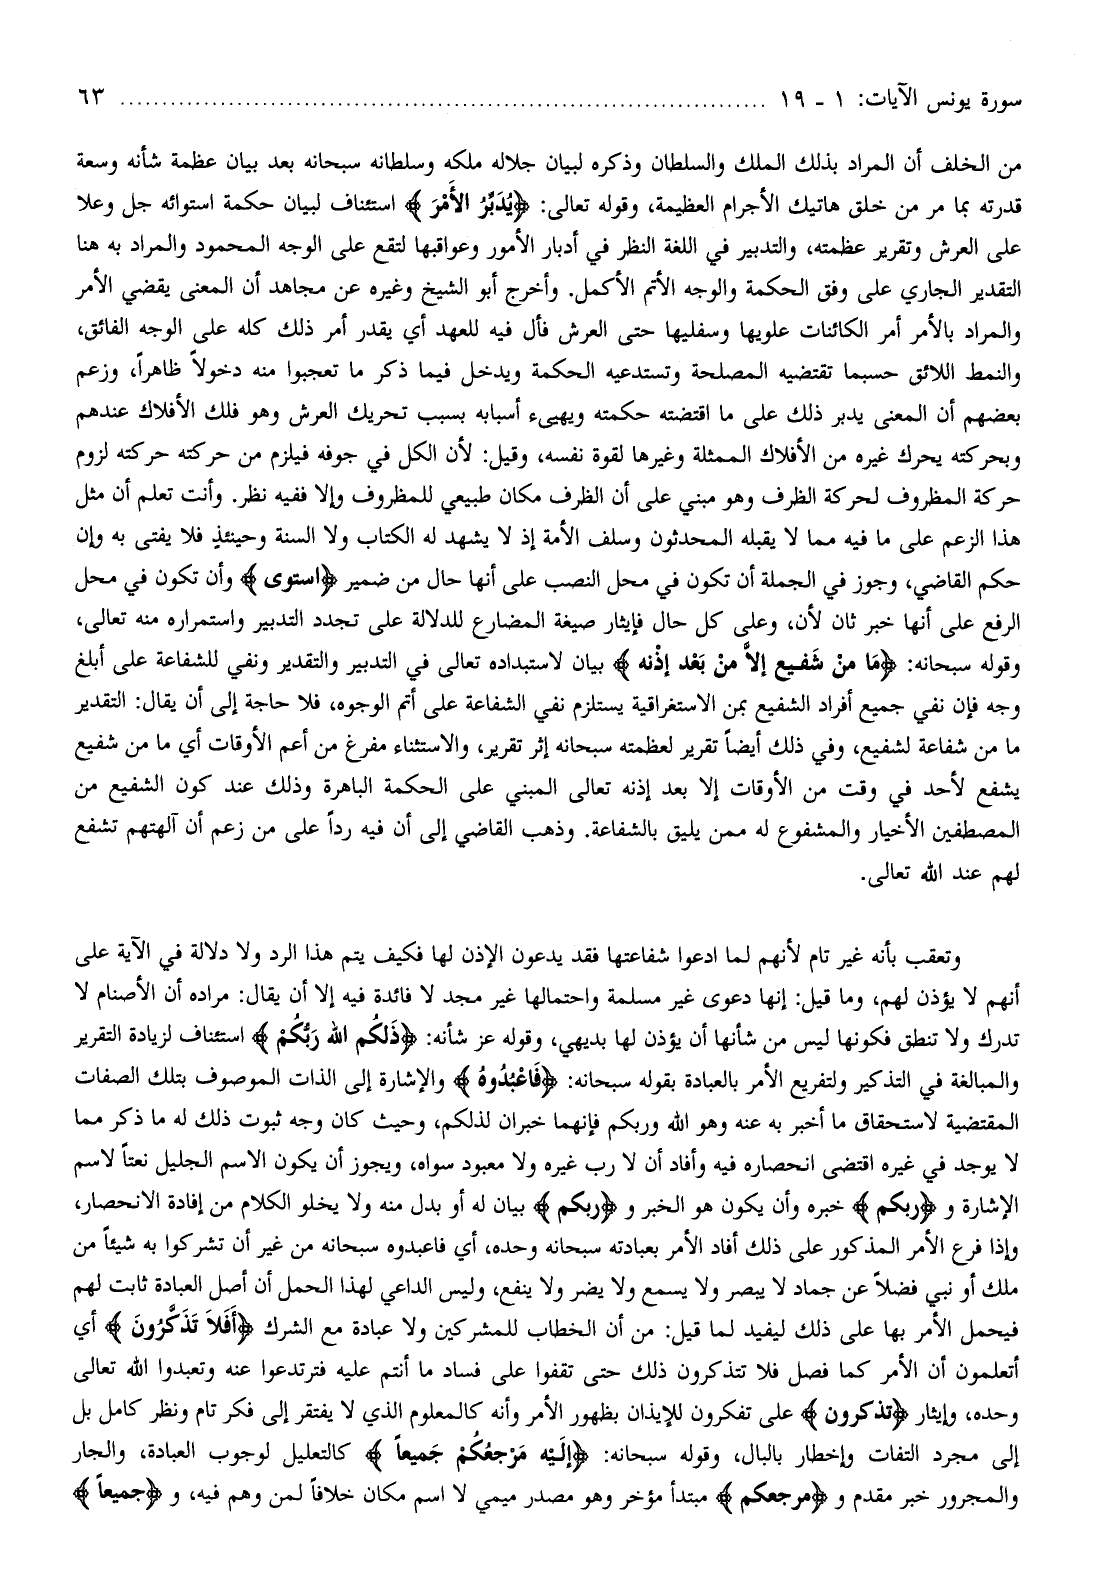 سورة يونس الآيات: ١ - ١٩ ................................................................ ٦٣
من الخلف أن المراد بذلك الملك والسلطان وذكره لبيان جلاله ملكه وسلطانه سبحانه بعد بيان عظمة شأنه وسعة
قدرته بما مر من خلق هاتيك الأجرام العظيمة، وقوله تعالى: ﴿يُدَبِّرُ الأَمْرَ﴾ استئناف لبيان حكمة استوائه جل وعلا
على العرش وتقرير عظمته، والتدبير في اللغة النظر في أدبار الأمور وعواقبها لتقع على الوجه المحمود والمراد به هنا
التقدير الجاري على وفق الحكمة والوجه الأتم الأكمل. وأخرج أبو الشيخ وغيره عن مجاهد أن المعنى يقضي الأمر
والمراد بالأمر أمر الكائنات علويها وسفليها حتى العرش فأل فيه للعهد أي يقدر أمر ذلك كله على الوجه الفائق،
والنمط اللائق حسبما تقتضيه المصلحة وتستدعيه الحكمة ويدخل فيما ذكر ما تعجبوا منه دخولاً ظاهراً، وزعم
بعضهم أن المعنى يدبر ذلك على ما اقتضته حكمته ويهيىء أسبابه بسبب تحريك العرش وهو فلك الأفلاك عندهم
وبحركته يحرك غيره من الأفلاك الممثلة وغيرها لقوة نفسه، وقيل: لأن الكل في جوفه فيلزم من حركته حركته لزوم
حركة المظروف لحركة الظرف وهو مبني على أن الظرف مكان طبيعي للمظروف وإلا ففيه نظر. وأنت تعلم أن مثل
هذا الزعم على ما فيه مما لا يقبله المحدثون وسلف الأمة إذ لا يشهد له الكتاب ولا السنة وحينئذٍ فلا يفتى به وإن
حكم القاضي، وجوز في الجملة أن تكون في محل النصب على أنها حال من ضمير ﴿استوى﴾ وأن تكون في محل
الرفع على أنها خبر ثان لأن، وعلى كل حال فإيثار صيغة المضارع للدلالة على تجدد التدبير واستمراره منه تعالى،
وقوله سبحانه: ﴿مَا مِنْ شَفـيع إلاَّ منْ بَعْد إذْنه﴾ بيان لاستبداده تعالى في التدبير والتقدير ونفي للشفاعة على أبلغ
وجه فإن نفي جميع أفراد الشفيع بمن الاستغراقية يستلزم نفي الشفاعة على أتم الوجوه، فلا حاجة إلى أن يقال: التقدير
ما من شفاعة لشفيع، وفي ذلك أيضاً تقرير لعظمته سبحانه إثر تقرير، والاستثناء مفرغ من أعم الأوقات أي ما من شفيع
يشفع لأحد في وقت من الأوقات إلا بعد إذنه تعالى المبني على الحكمة الباهرة وذلك عند كون الشفيع من
المصطفين الأخيار والمشفوع له ممن يليق بالشفاعة. وذهب القاضي إلى أن فيه رداً على من زعم أن آلهتهم تشفع
لهم عند الله تعالى.
وتعقب بأنه غير تام لأنهم لما ادعوا شفاعتها فقد يدعون الإذن لها فكيف يتم هذا الرد ولا دلالة في الآية على
أنهم لا يؤذن لهم، وما قيل: إنها دعوى غير مسلمة واحتمالها غير مجد لا فائدة فيه إلا أن يقال: مراده أن الأصنام لا
تدرك ولا تنطق فكونها ليس من شأنها أن يؤذن لها بديهي، وقوله عز شأنه: ﴿ذَلكُم الله رَبُّكُمْ﴾ استئناف لزيادة التقرير
والمبالغة في التذكير ولتفريع الأمر بالعبادة بقوله سبحانه: ﴿فَاعْبُدُوهُ﴾ والإشارة إلى الذات الموصوف بتلك الصفات
المقتضية لاستحقاق ما أخبر به عنه وهو الله وربكم فإنهما خبران لذلكم، وحيث كان وجه ثبوت ذلك له ما ذكر مما
لا يوجد في غيره اقتضى انحصاره فيه وأفاد أن لا رب غيره ولا معبود سواه، ويجوز أن يكون الاسم الجليل نعتاً لاسم
الإشارة و ﴿ربكم﴾ خبره وأن يكون هو الخبر و ﴿ربكم﴾ بيان له أو بدل منه ولا يخلو الكلام من إفادة الانحصار،
وإذا فرع الأمر المذكور على ذلك أفاد الأمر بعبادته سبحانه وحده، أي فاعبدوه سبحانه من غير أن تشركوا به شيئاً من
ملك أو نبي فضلاً عن جماد لا يبصر ولا يسمع ولا يضر ولا ينفع، وليس الداعي لهذا الحمل أن أصل العبادة ثابت لهم
فيحمل الأمر بها على ذلك ليفيد لما قيل: من أن الخطاب للمشركين ولا عبادة مع الشرك ﴿أَفَلاَ تَذَكَّرُونَ﴾ أي
أتعلمون أن الأمر كما فصل فلا تتذكرون ذلك حتى تقفوا على فساد ما أنتم عليه فترتدعوا عنه وتعبدوا الله تعالى
وحده، وإيثار ﴿تذكرون﴾ على تفكرون للإيذان بظهور الأمر وأنه كالمعلوم الذي لا يفتقر إلى فكر تام ونظر كامل بل
إلى مجرد التفات وإخطار بالبال، وقوله سبحانه: ﴿إلَيْه مَرْجعُكُمْ جَميعاً﴾ كالتعليل لوجوب العبادة، والجار
والمجرور خبر مقدم و ﴿مرجعكم﴾ مبتدأ مؤخر وهو مصدر ميمي لا اسم مكان خلافاً لمن وهم فيه، و ﴿جميعاً﴾